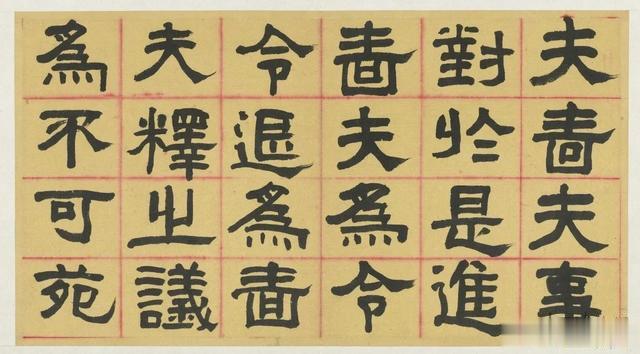 夫嗇夫事
對於是進
嗇夫為令
令退為嗇
夫釋之議
為不可苑